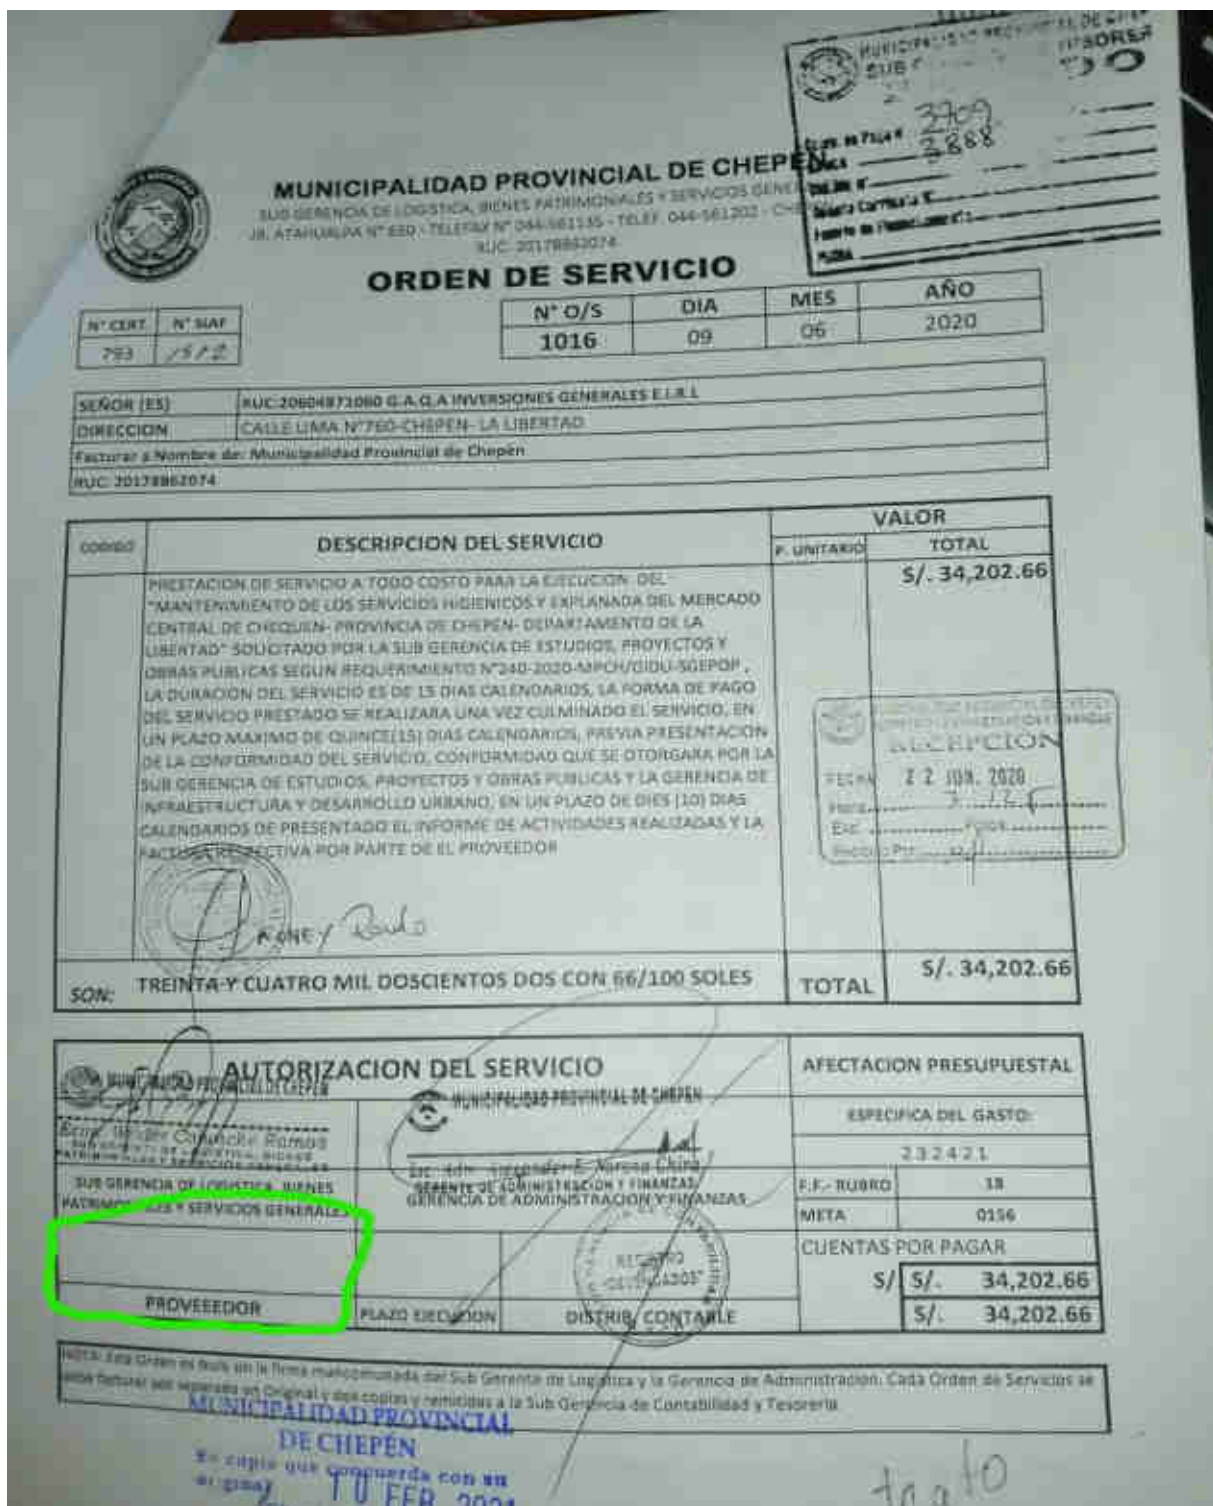 MUNICIPALIDAD PROVINCIAL DE CHEPÉN
SUB GERENCIA DE LOGISTICA, BIENES PATRIMONIALES Y SERVICIOS
JR. ATAHUALPA N° 650 - TELEFAX N° 044-561135 - TELEF. 044-561202 -
RUC: 20178862074
3709
3888
ORDEN DE SERVICIO
N° CERT. N° SIAF
793 1512
N° O/S DIA MES AÑO
1016 09 06 2020
SEÑOR (ES) RUC:20604871060 G.A.Q.A INVERSIONES GENERALES E.I.R.L
DIRECCION CALLE LIMA N°760-CHEPEN- LA LIBERTAD
Facturar a Nombre de: Municipalidad Provincial de Chepén
RUC: 20178862074
CODIGO DESCRIPCION DEL SERVICIO VALOR
P. UNITARIO TOTAL
S/. 34,202.66
PRESTACION DE SERVICIO A TODO COSTO PARA LA EJECUCION DEL
"MANTENIMIENTO DE LOS SERVICIOS HIGIENICOS Y EXPLANADA DEL MERCADO
CENTRAL DE CHEQUEN- PROVINCIA DE CHEPEN- DEPARTAMENTO DE LA
LIBERTAD" SOLICITADO POR LA SUB GERENCIA DE ESTUDIOS, PROYECTOS Y
OBRAS PUBLICAS SEGUN REQUERIMIENTO N°240-2020-MPCH/GIDU-SGEPOP ,
LA DURACION DEL SERVICIO ES DE 15 DIAS CALENDARIOS, LA FORMA DE PAGO
DEL SERVICIO PRESTADO SE REALIZARA UNA VEZ CULMINADO EL SERVICIO, EN
UN PLAZO MAXIMO DE QUINCE(15) DIAS CALENDARIOS, PREVIA PRESENTACION
DE LA CONFORMIDAD DEL SERVICIO, CONFORMIDAD QUE SE OTORGARA POR LA
SUB GERENCIA DE ESTUDIOS, PROYECTOS Y OBRAS PUBLICAS Y LA GERENCIA DE
INFRAESTRUCTURA Y DESARROLLO URBANO, EN UN PLAZO DE DIES (10) DIAS
CALENDARIOS DE PRESENTADO EL INFORME DE ACTIVIDADES REALIZADAS Y LA
FACTURA RESPECTIVA POR PARTE DE EL PROVEEDOR
RECEPCION
FECHA 22 JUN. 2020
SON: TREINTA Y CUATRO MIL DOSCIENTOS DOS CON 66/100 SOLES TOTAL S/. 34,202.66
AUTORIZACION DEL SERVICIO
AFECTACION PRESUPUESTAL
MUNICIPALIDAD PROVINCIAL DE CHEPEN
MUNICIPALIDAD PROVINCIAL DE CHEPÉN
ESPECIFICA DEL GASTO:
232421
GERENTE DE ADMINISTRACION Y FINANZAS
SUB GERENCIA DE LOGISTICA, BIENES
PATRIMONIALES Y SERVICIOS GENERALES
GERENCIA DE ADMINISTRACION Y FINANZAS
F.F.- RUBRO 18
META 0156
CUENTAS POR PAGAR
S/ S/. 34,202.66
S/. 34,202.66
REGISTRO
PROVEEEDOR PLAZO EJECUCION DISTRIB. CONTABLE
NOTA: Esta Orden es Nula sin la firma mancomunada del Sub Gerente de Logistica y la Gerencia de Administracion. Cada Orden de Servicios se
debe facturar por separado en Original y dos copias y remitidas a la Sub Gerencia de Contabilidad y Tesoreria
MUNICIPALIDAD PROVINCIAL
DE CHEPÉN
Es copia que concuerda con su
original
10 FEB 2021